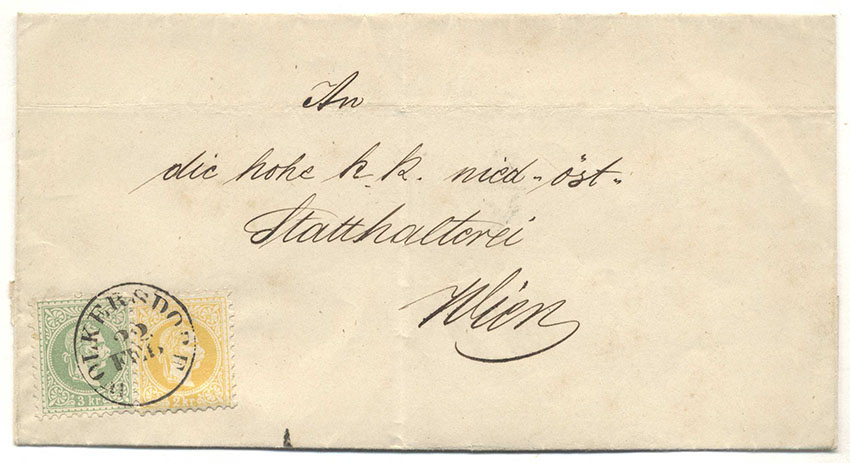 An
die hohe k. k. nied-öst-
Statthalterei
Wien
WOLKERSDORF
22
FEB.
3 kr. 2 kr.